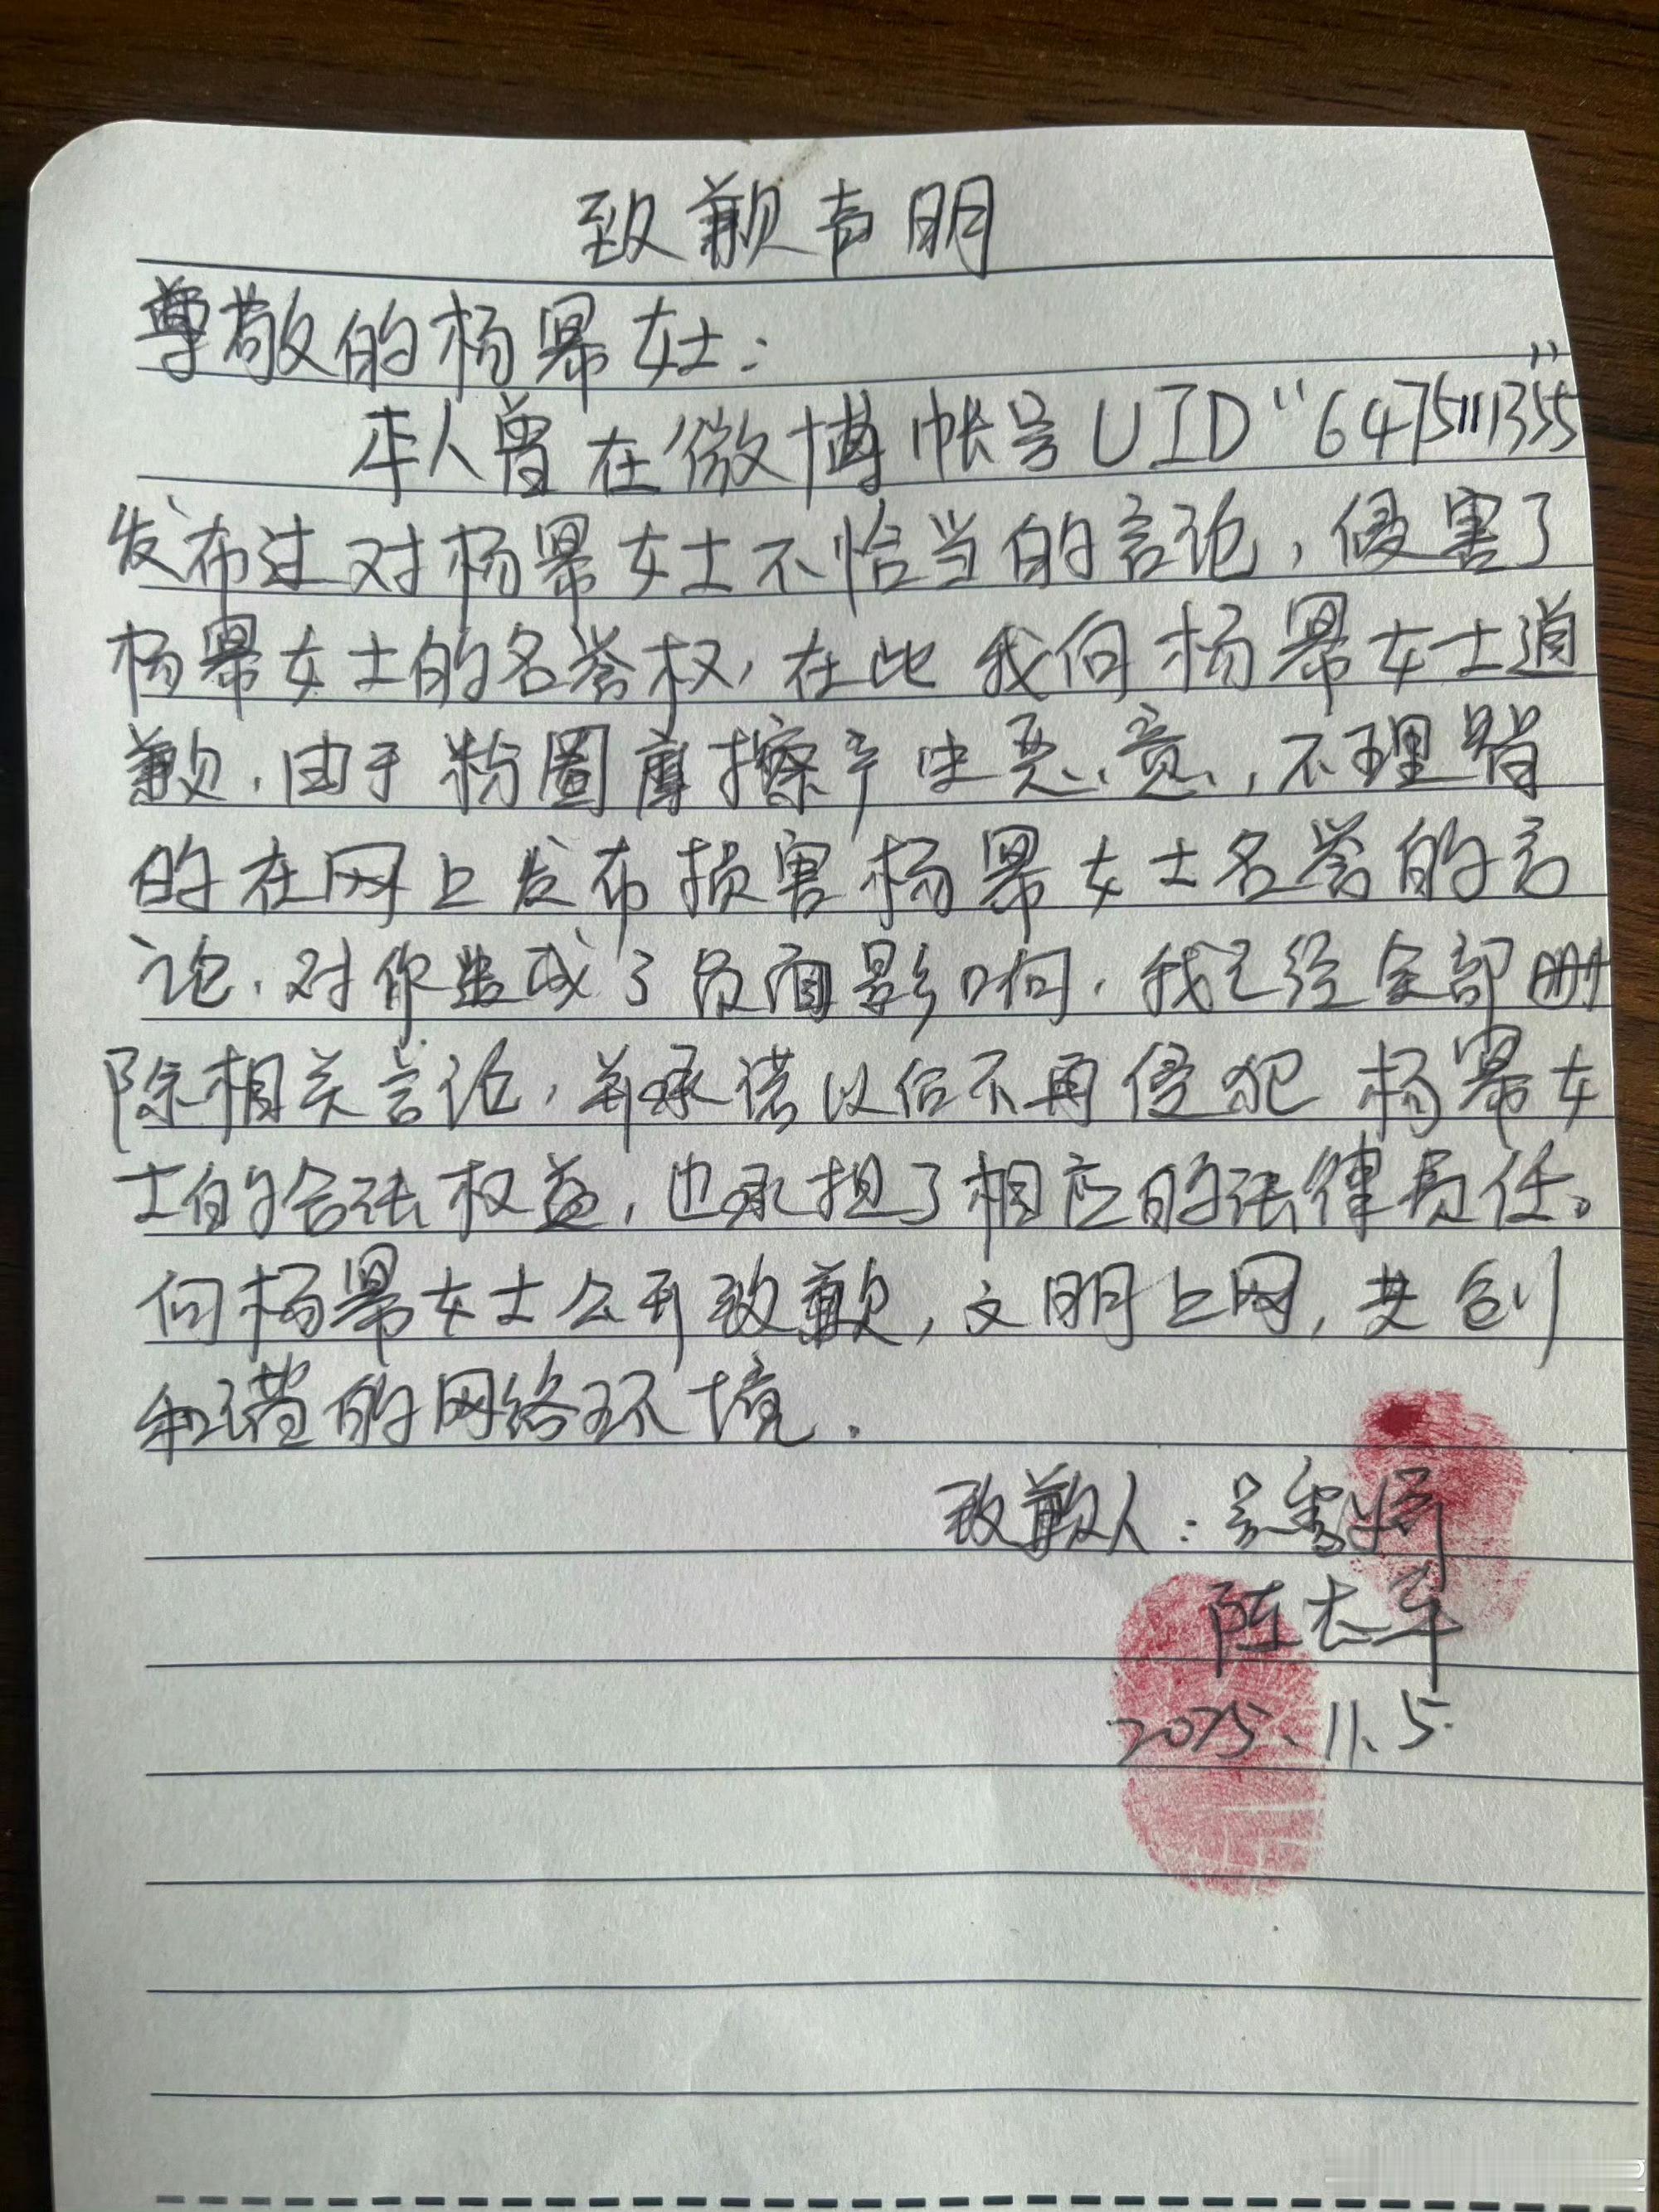 致歉声明
尊敬的杨幂女士：
本人曾在微博帐号UID“6475111355”
发布过对杨幂女士不恰当的言论，侵害了
杨幂女士的名誉权，在此我向杨幂女士道
歉，由于粉圈摩擦产生恶意，不理智
的在网上发布损害杨幂女士名誉的言
论，对你造成了负面影响，我已经全部删
除相关言论，并承诺以后不再侵犯杨幂女
士的合法权益，也承担了相应的法律责任。
向杨幂女士公开致歉，文明上网，共创
和谐的网络环境.
致歉人：吴雪婷
陈志军
2025.11.5